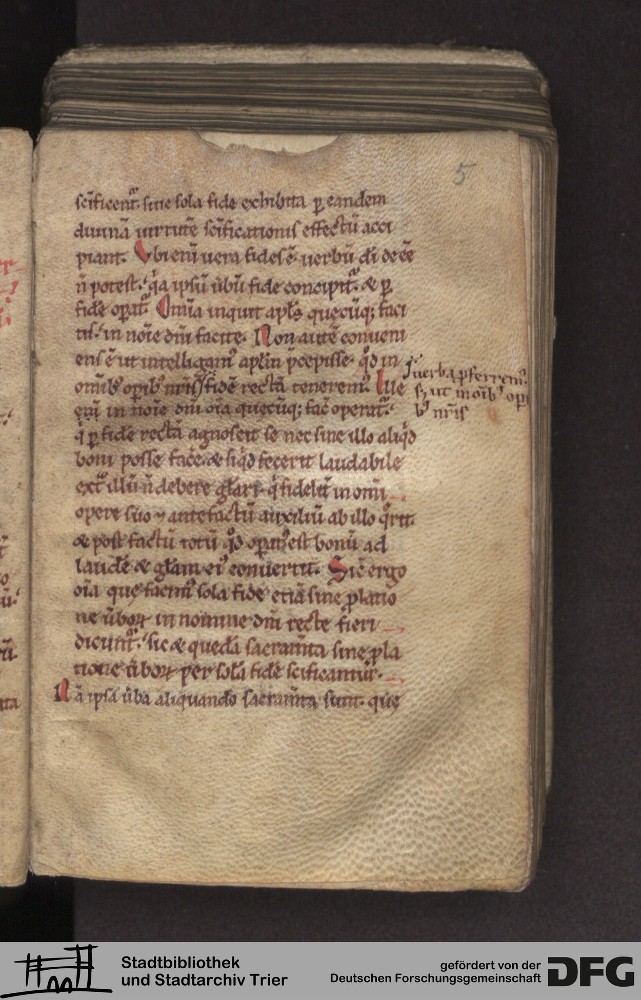 5
sc̄ificent᷑. siue sola fide exhibita ꝑ eandem
diuinā uirtutē sc̄ificationis effectū acci
piant. Vbi enī uera fides ē. uerbū dī deēē
n̄ potest. q̇a ipsū ūbū fide concipit᷑. & ꝑ
fide opat᷑. Om̄ia inquit apl̄s quęcūq; faci
tis. in noīe dnī facite. Non autē conueni
ens ē ut intelligam᷒ apl̄m p̄cepisse. qd̄ in
om̄ib᷒ opib᷒ nrīs fidē rectā tenerem᷒. Ille
eni in noīe dnī oīa quęcūq; fac̄ operat᷑.
q̇ ꝑ fidē rectā agnoscit se nec sine illo aliqd̄
boni posse facē. & siqd̄ fecerit laudabile
ext᷑ illū n̄ debere glari. q̇ fidelit̄ in om̄i
opere suo ⁊ ante factū auxiliū ab illo q̄rit.
& post factū totū qd̄ opat᷒ est bonū ad
laudē & glam ei᷒ conuertit. Sic ergo
oīa quę facim᷒ sola fide etiā sine ꝓlatio
ne ūboꝝ in nomine dnī recte fieri
dicunt᷑. sic & quedā sacram̄ta sine ꝓla
tione ūboꝝ per solā fidē sc̄ificantur.
Nā ipsa ūba aliquando sacram̄ta sunt. quę
uerba ꝓferrem᷒.
s; ut in oīb᷒ opi
b᷒ nrīs
Stadtbibliothek
und Stadtarchiv Trier
gefördert von der
Deutschen Forschungsgemeinschaft
DFG